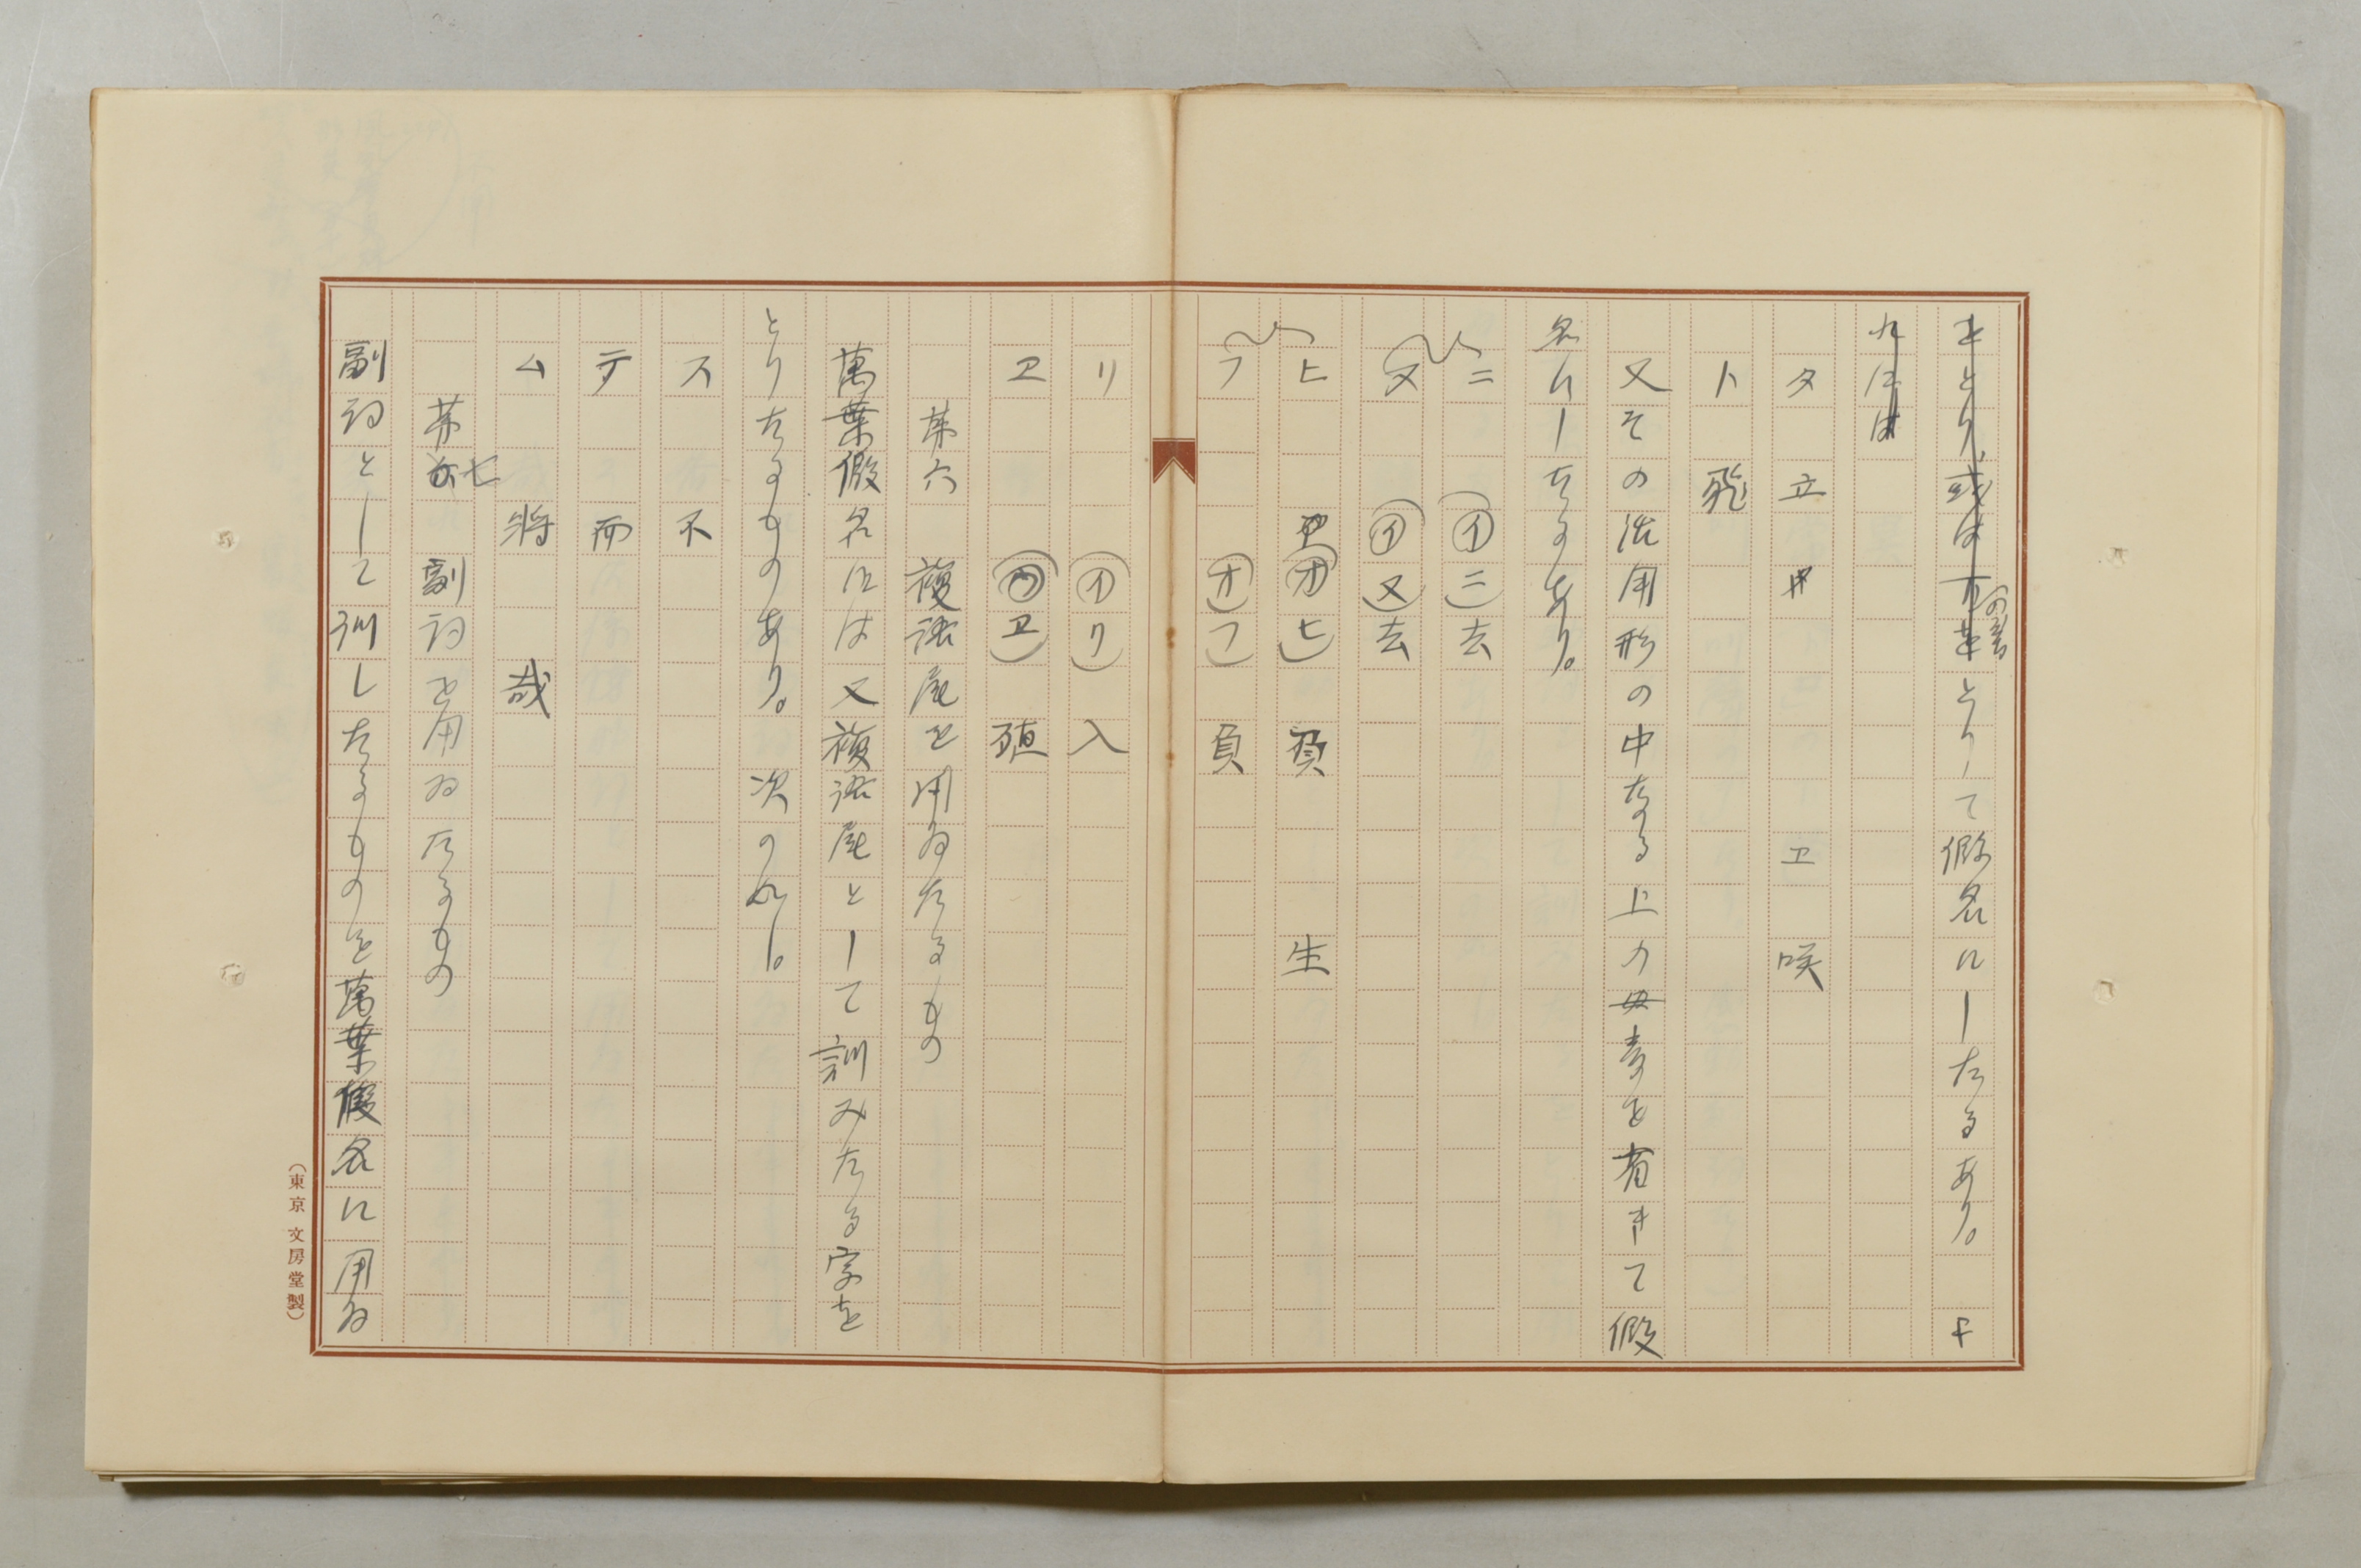 をとり、或はのをとりて假名にしたるあり。
には
タ 立 ヰ ヱ 咲
ト 飛
又その活用形の中なる上の母音を省きて假
名にしたるあり。
ニ (イニ)去
ヌ (イヌ)去
ヒ (オヒ) 負 生
フ (オフ) 負
リ (イリ) 入
ヱ (ウヱ) 殖
第六 複語尾を用ゐたるもの
萬葉假名には又複語尾として訓みたる字を
とりたるものあり。次の如し。
ス 不
テ 而
ム 將 哉
第七 副詞を用ゐたるもの
副詞として訓したるものを萬葉假名に用ゐ
(東京 文房堂製)